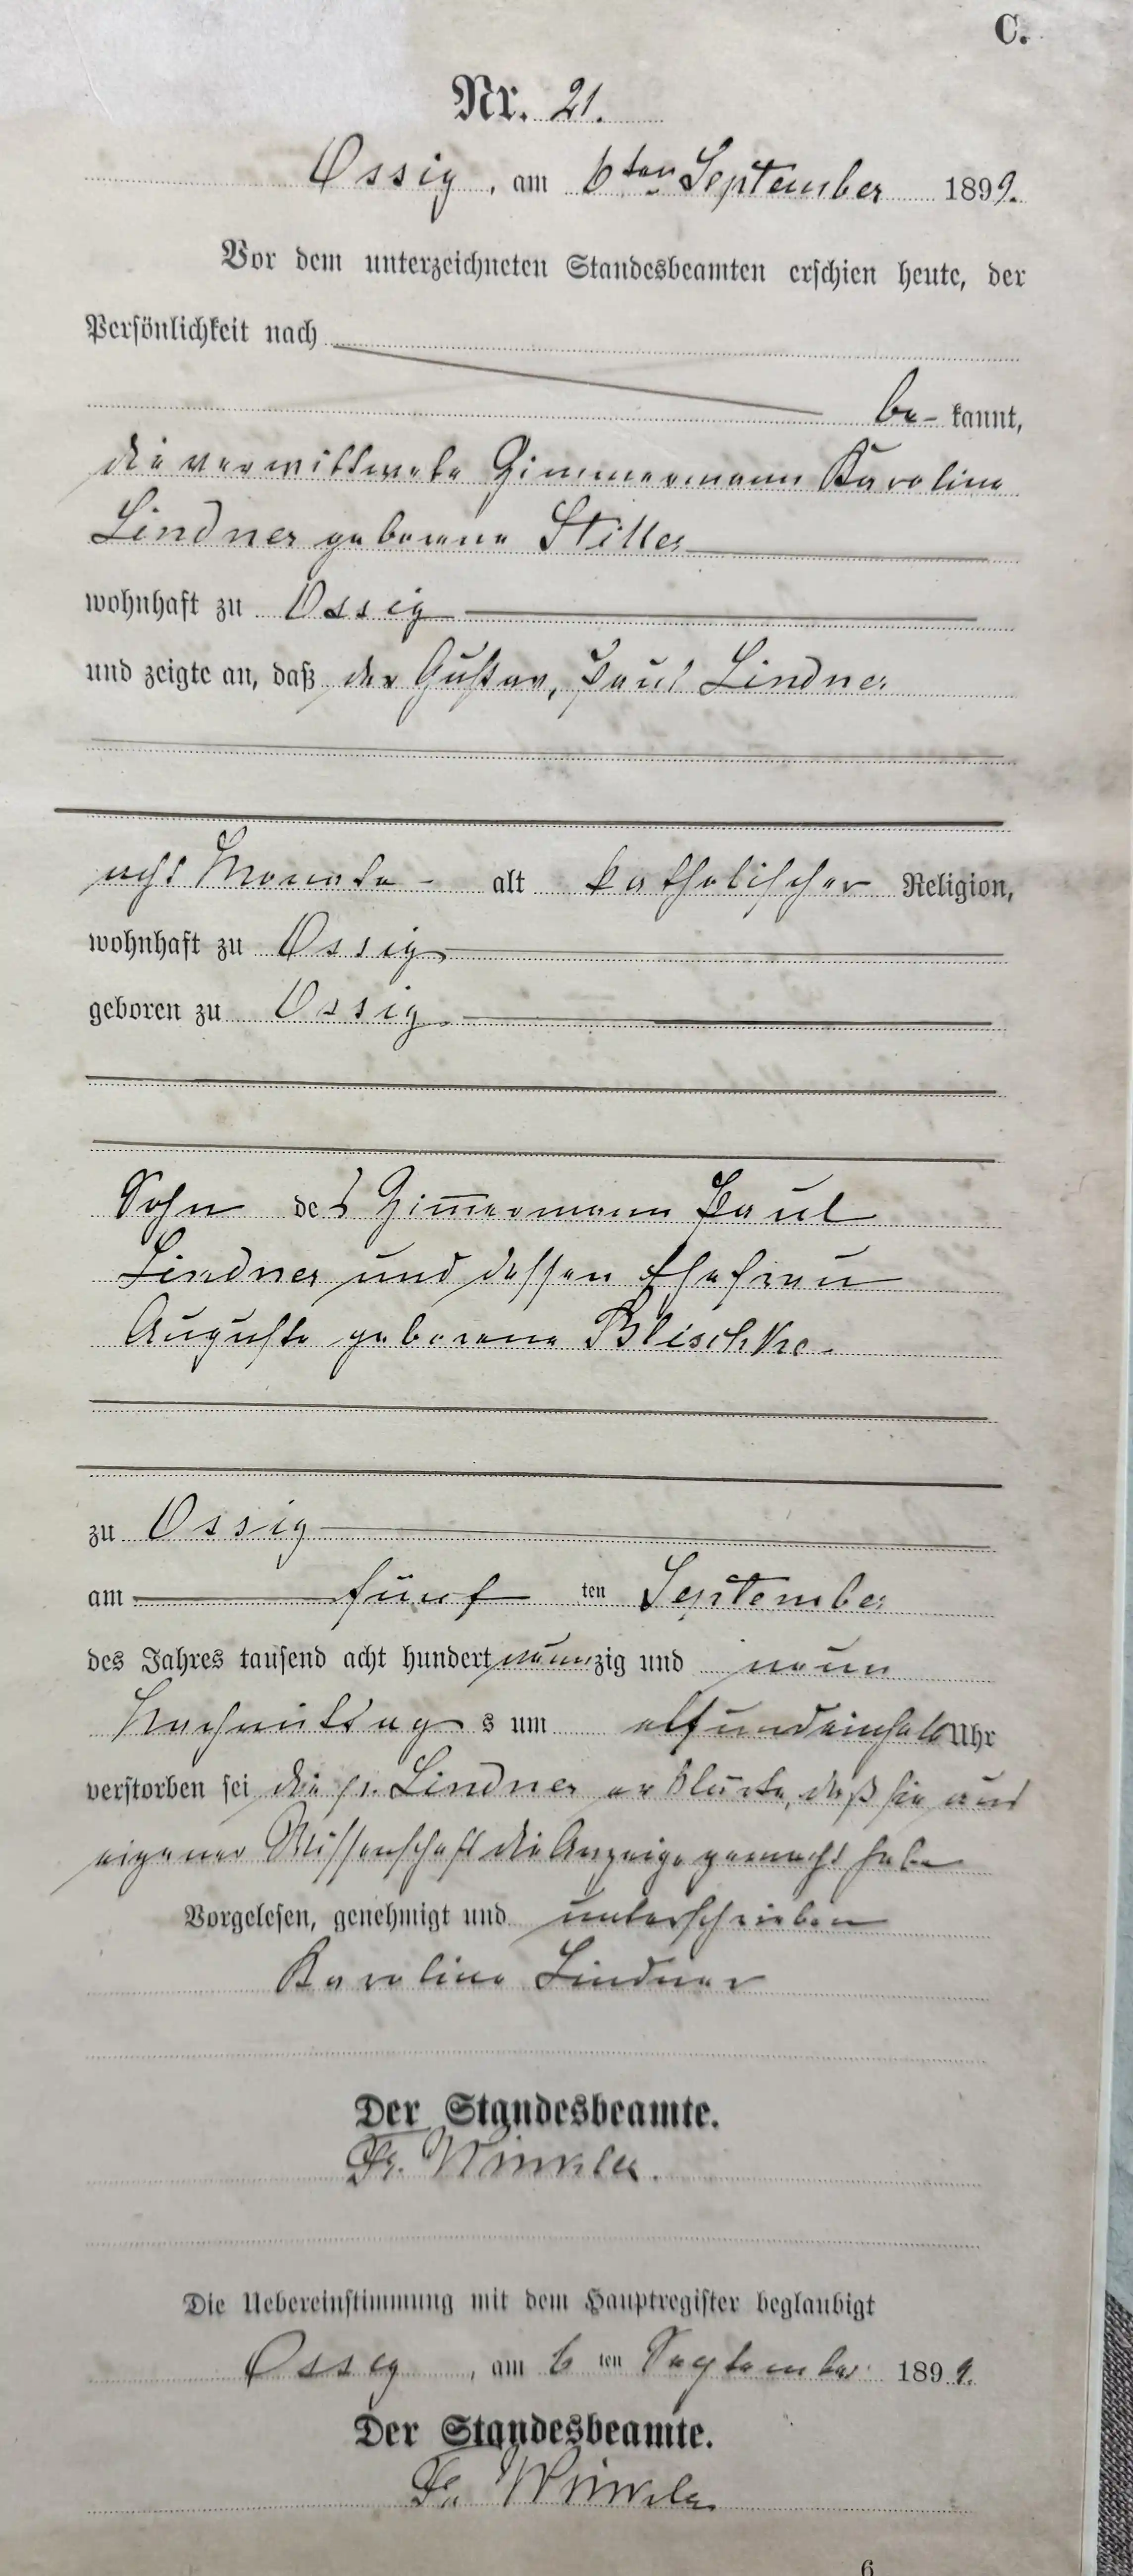 C.
Nr. 21.
Ossig, am 6ten September 1899.
Vor dem unterzeichneten Standesbeamten erschien heute, der
Persönlichkeit nach
be- kannt,
die verwittwete Zimmermann Karoline
Lindner geborene Stiller
wohnhaft zu Ossig
und zeigte an, daß der Gustav, Paul Lindner
acht Monate - alt katholischer Religion,
wohnhaft zu Ossig
geboren zu Ossig
Sohn des Zimmermann Paul
Lindner und dessen Ehefrau
Auguste geborene Blischke.
zu Ossig
am fünf ten September
des Jahres tausend acht hundert neunzig und neun
Nachmittag s um elfundeinhalb Uhr
verstorben sei die p. Lindner erklärte, daß sie aus
eigener Wissenschaft die Anzeige gemacht habe
Vorgelesen, genehmigt und unterschrieben
Karoline Lindner
Der Standesbeamte.
Fr. Winkler.
Die Uebereinstimmung mit dem Hauptregister beglaubigt
Ossig, am 6 ten September 1899.
Der Standesbeamte.
Fr. Winkler
6